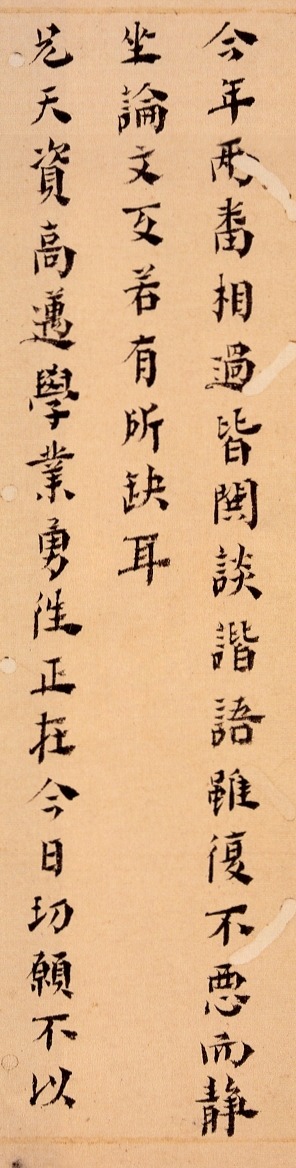 今年兩番相過皆閧談諧語雖復不惡而靜
坐論文反若有所缺耳
兄天資高邁學業勇徃正在今日切願不以